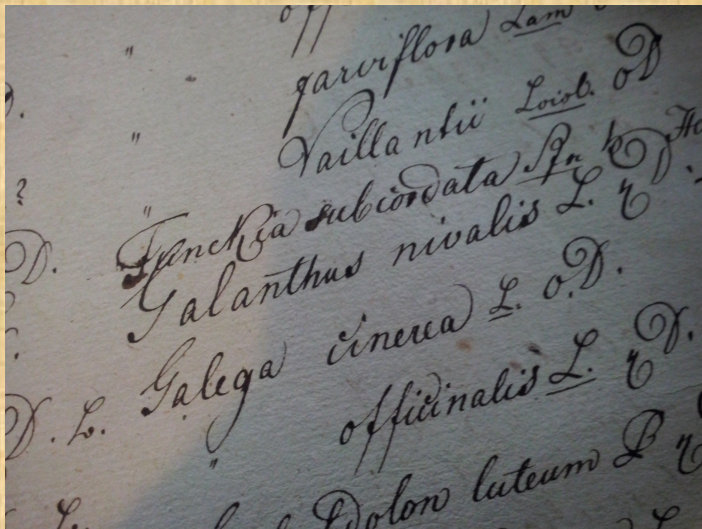 " off
" parviflora Lam
" Vaillantii Loisl. oD
? Funckia subcordata Spr
D. Galanthus nivalis L.
Galega cinerea L. o.D.
D. L. " officinalis L. D.
dolon luteum